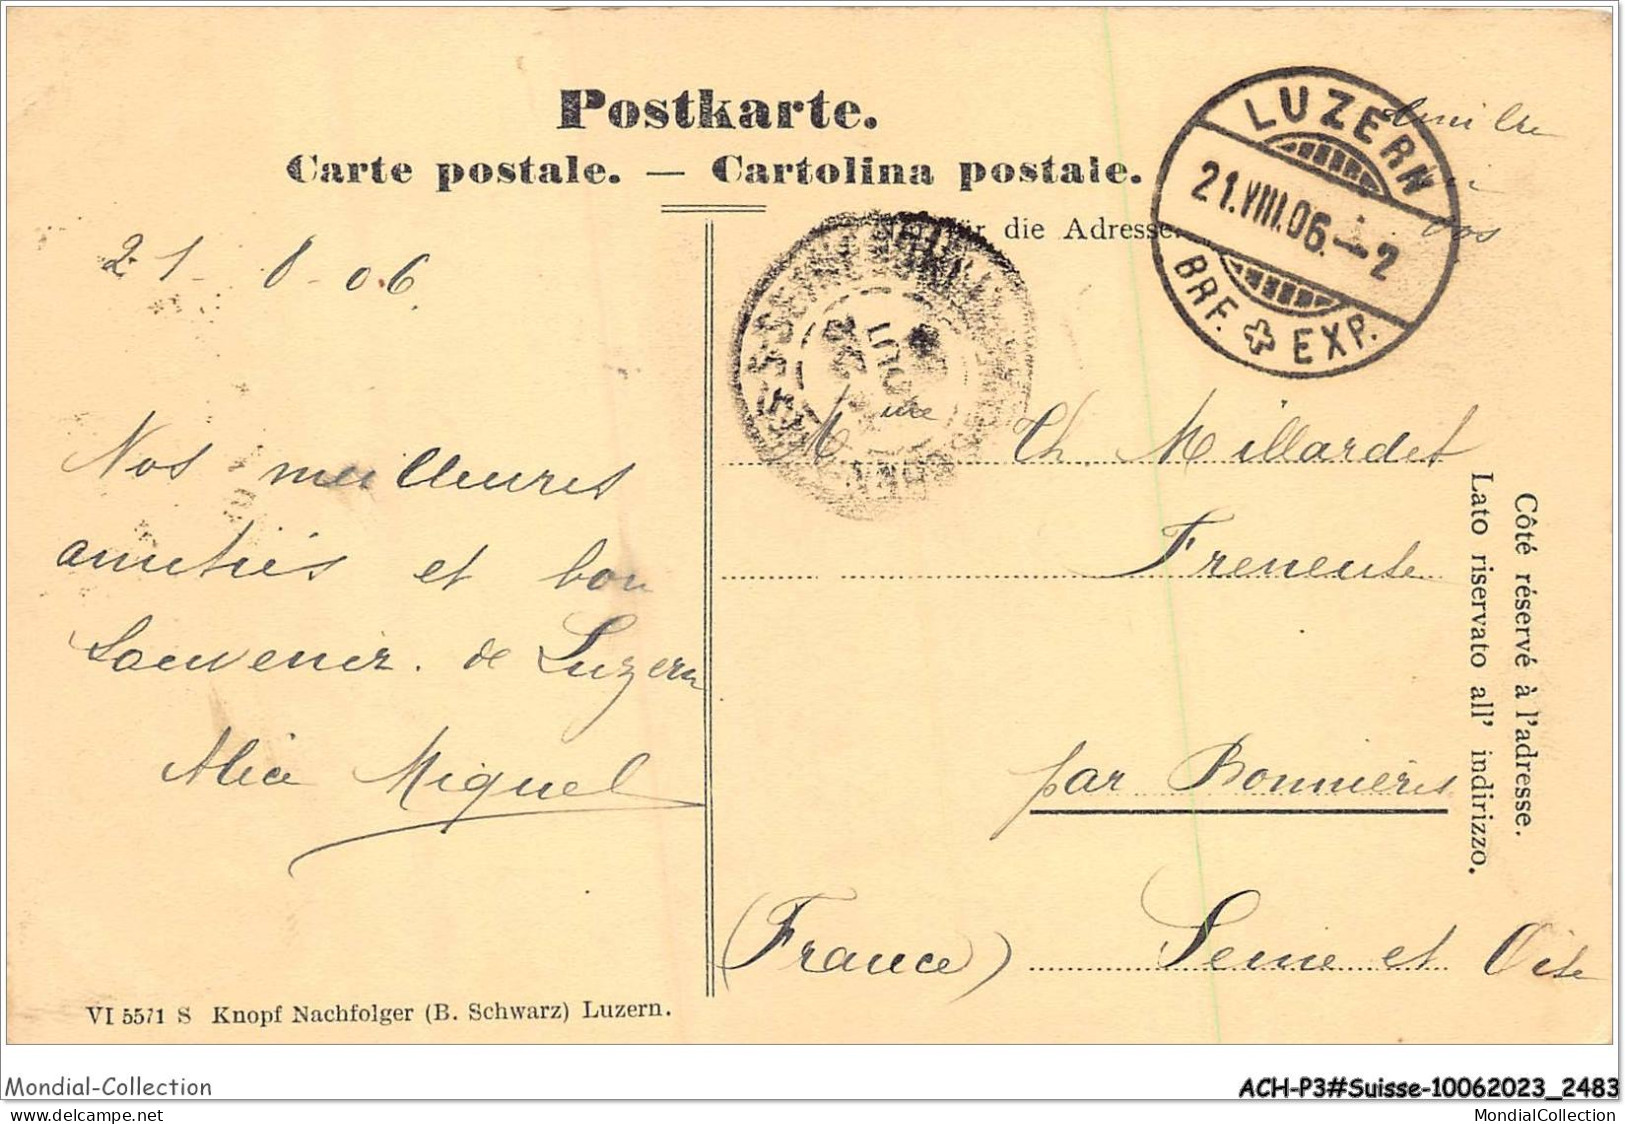 Postkarte.
Carte postale. — Cartolina postale.
für die Adresse.
LUZERN
21.VIII.06.—2
BRF. EXP.
21-8-06.
Nos meilleures
amitiés et bon
Souvenir. de Luzern
Alice Miguel
Mme Ch. Millardet
Freneuse
par Bonnières
(France) Seine et Oise
Côté réservé à l'adresse.
Lato riservato all' indirizzo.
VI 5571 S Knopf Nachfolger (B. Schwarz) Luzern.
Mondial-Collection
ACH-P3#Suisse-10062023_2483
MondialCollection